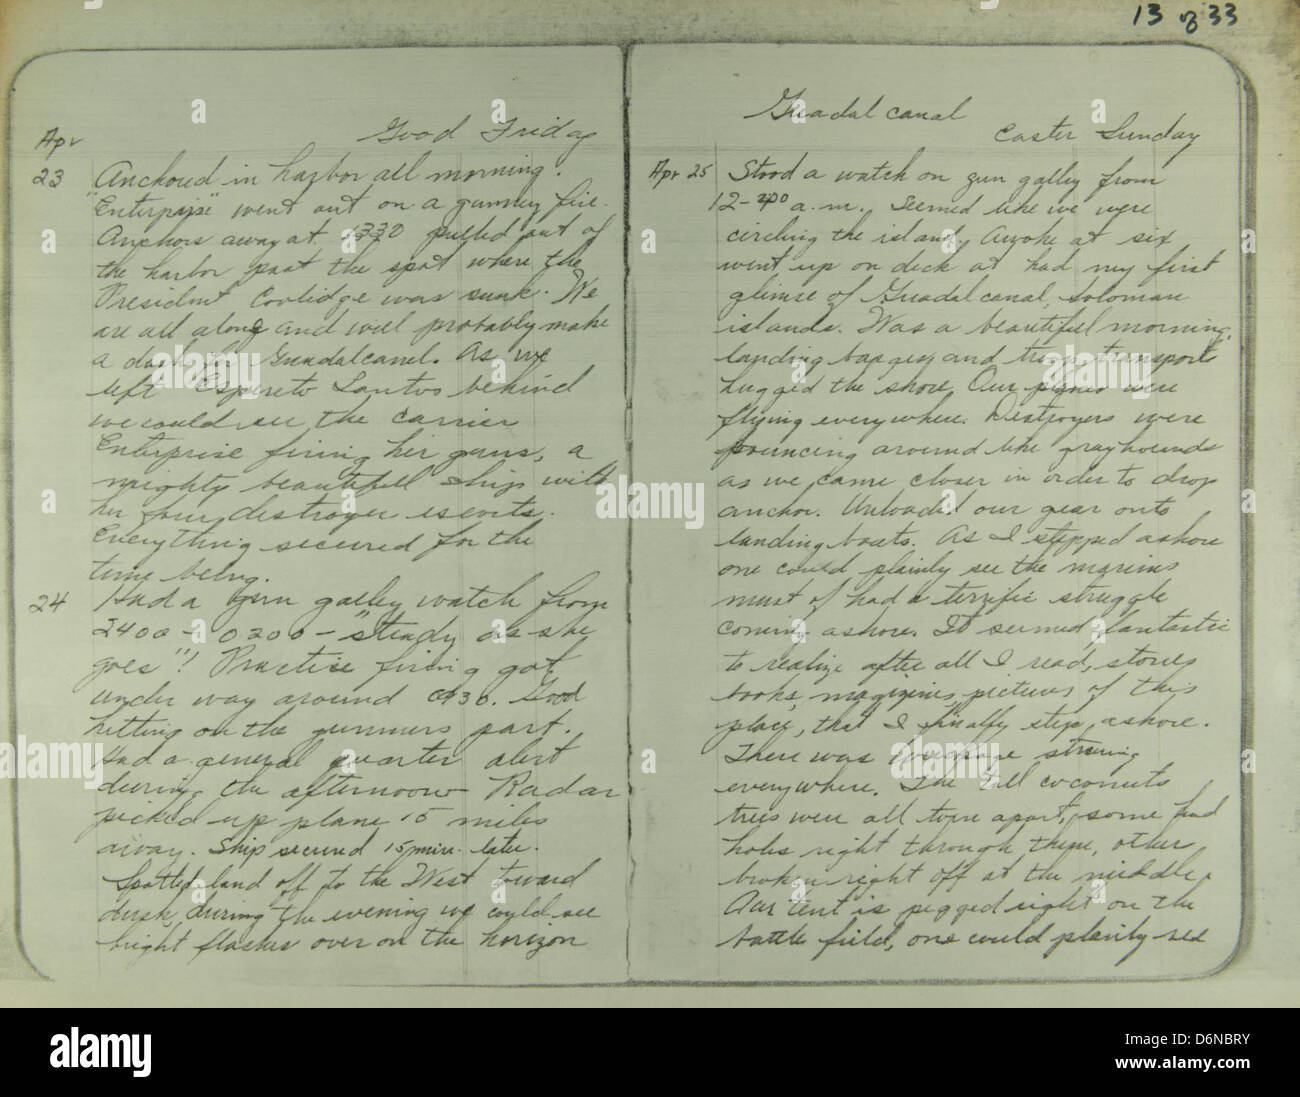 13 of 33
Good Friday
Apr
23 Anchored in harbor all morning.
"Enterprise" went out on a gunnery fire.
Anchors away at 1330 pulled out of
the harbor past the spot where the
President Coolidge was sunk. We
are all alone and will probably make
a dash for Guadalcanal. As we
left Espireto Santos behind
we could see the carrier
Enterprise firing her guns, a
mighty beautiful ship with
her four destroyer escorts.
Everything secured for the
time being.
24 Had a gun galley watch from
2400 - 0200 - "steady as she
goes"! Practise firing got
under way around 0930. Good
hitting on the gunners part.
Had a general quarter alert
during the afternoon Radar
picked up plane 15 miles
away. Ship secured 15 min. late.
Spotted land off to the West toward
dusk, during the evening we could see
bright flashes over on the horizon
Guadalcanal
Easter Sunday
Apr 25 Stood a watch on gun galley from
12-400 a.m. Seemed like we were
circling the island. Awoke at six
went up on deck at had my first
glimse of Guadalcanal, Soloman
islands. Was a beautiful morning,
landing barges and troop transports
hugged the shore. Our planes were
flying everywhere. Destroyers were
pouncing around like grayhounds
as we came closer in order to drop
anchor. Unloaded our gear onto
landing boats. As I stepped ashore
one could plainly see the marines
must of had a terrific struggle
coming ashore. It seemed fantastic
to realize after all I read, stories
books, magizines, pictures of this
place, that I finally step ashore.
There was wreckage strewing
everywhere. The tall coconuts
trees were all tore apart, some had
holes right through them, other
broken right off at the middle.
Our tent is pegged right on the
battle field, one could plainly see
alamy
alamy
alamy
alamy
Image ID: D6NBRY
www.alamy.com